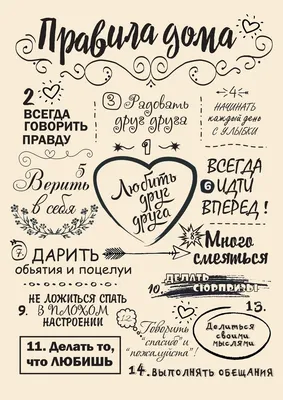 Правила дома
2
ВСЕГДА
ГОВОРИТЬ
ПРАВДУ
3 Радовать
друг друга
4
НАЧИНАТЬ
каждый день
С УЛЫБКИ
1
Любить
друг
друга
5
Верить
в себя
ВСЕГДА
6 ИДТИ
ВПЕРЕД!
7. ДАРИТЬ
объятия и поцелуи
8.
Много
смеяться
9.
НЕ ЛОЖИТЬСЯ СПАТЬ
В ПЛОХОМ
НАСТРОЕНИИ
10. ДЕЛАТЬ
СЮРПРИЗЫ
11. Делать то,
что ЛЮБИШЬ
12.
Говорить
"спасибо" и
"пожалуйста"!
13.
Делиться
своими
мыслями
14. ВЫПОЛНЯТЬ ОБЕЩАНИЯ